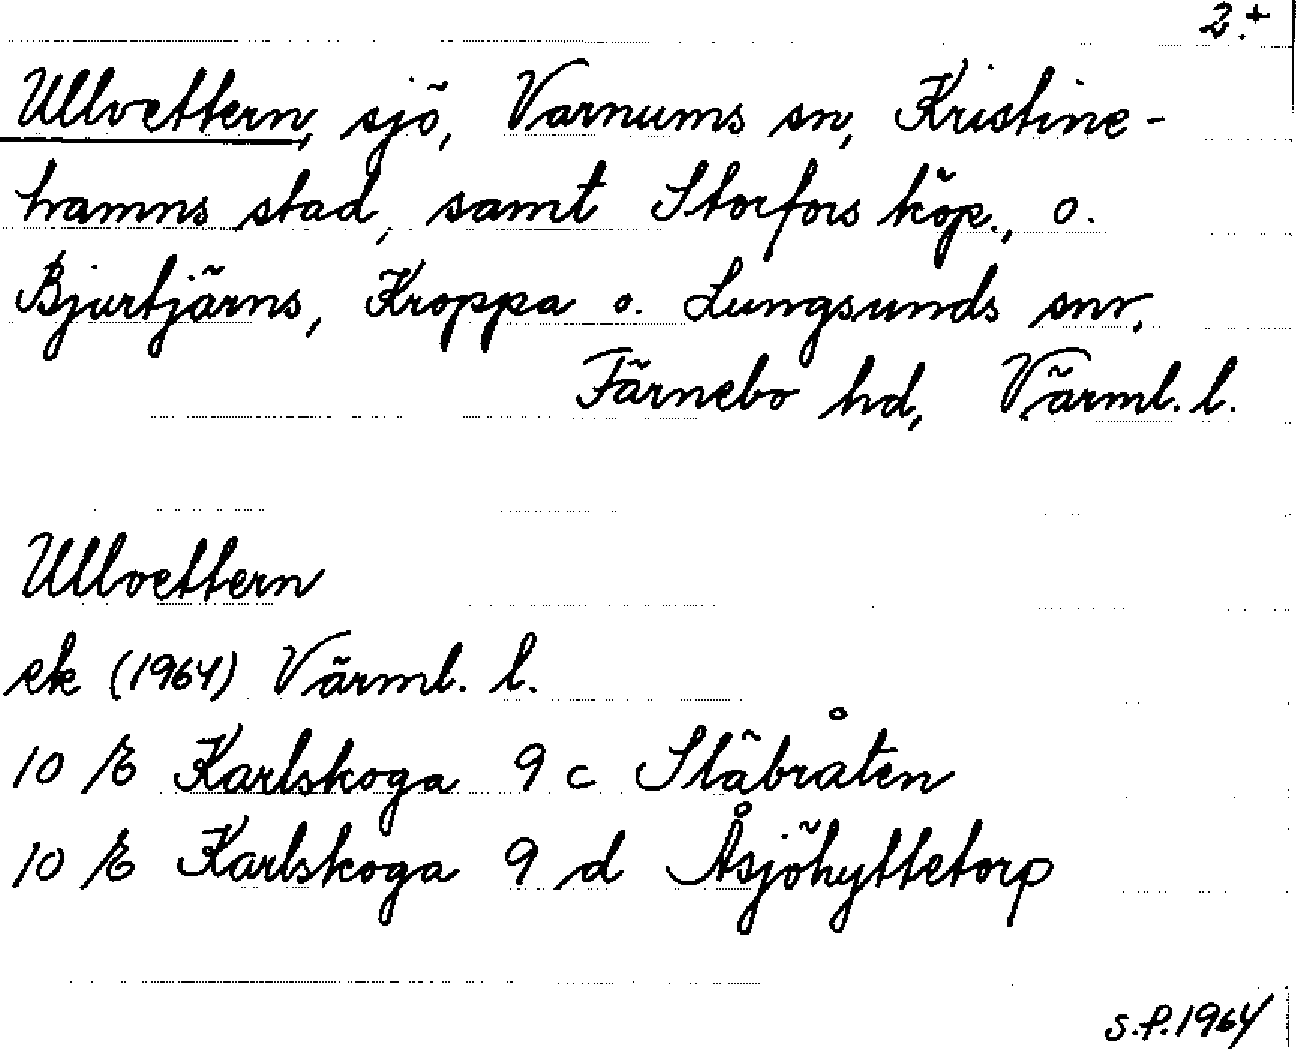 2.+
Ullvettern, sjö, Varnums sn, Kristine-
hamns stad, samt Storfors köp., o.
Bjurtjärns, Kroppa o. Lungsunds snr.
Färnebo hd, Värml. l.
Ullvettern
ek (1964) Värml. l.
10 E Karlskoga 9 c Stäbråten
10 E Karlskoga 9 d Åsjöhyttetorp
s.f. 1964